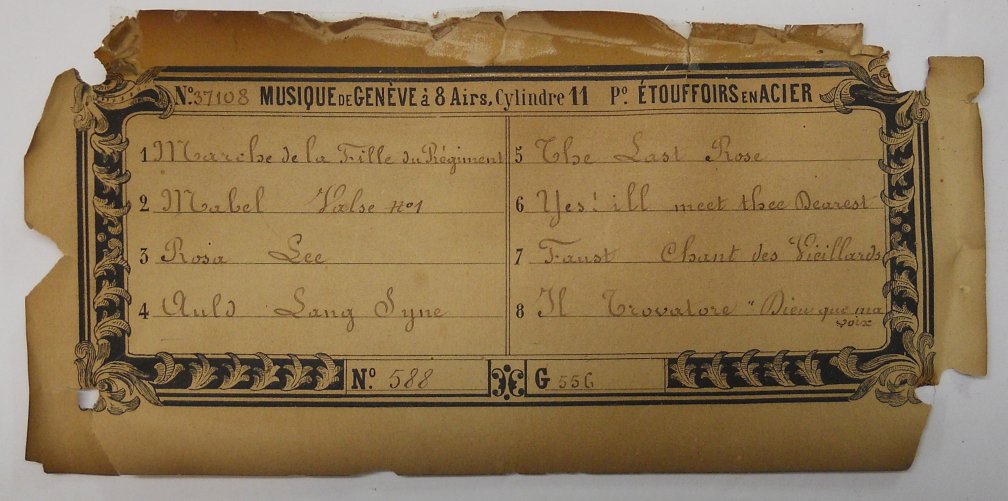 No. 37108 MUSIQUE DE GENÈVE à 8 Airs, Cylindre 11 Po. ÉTOUFFOIRS EN ACIER
1 Marche de la Fille du Régiment
2 Mabel Valse No 1
3 Rosa Lee
4 Auld Lang Syne
5 The Last Rose
6 Yes! ill meet thee Dearest
7 Faust Chant des Vieillards
8 Il Trovatore "Dieu que ma
voix
No. 588
G 556